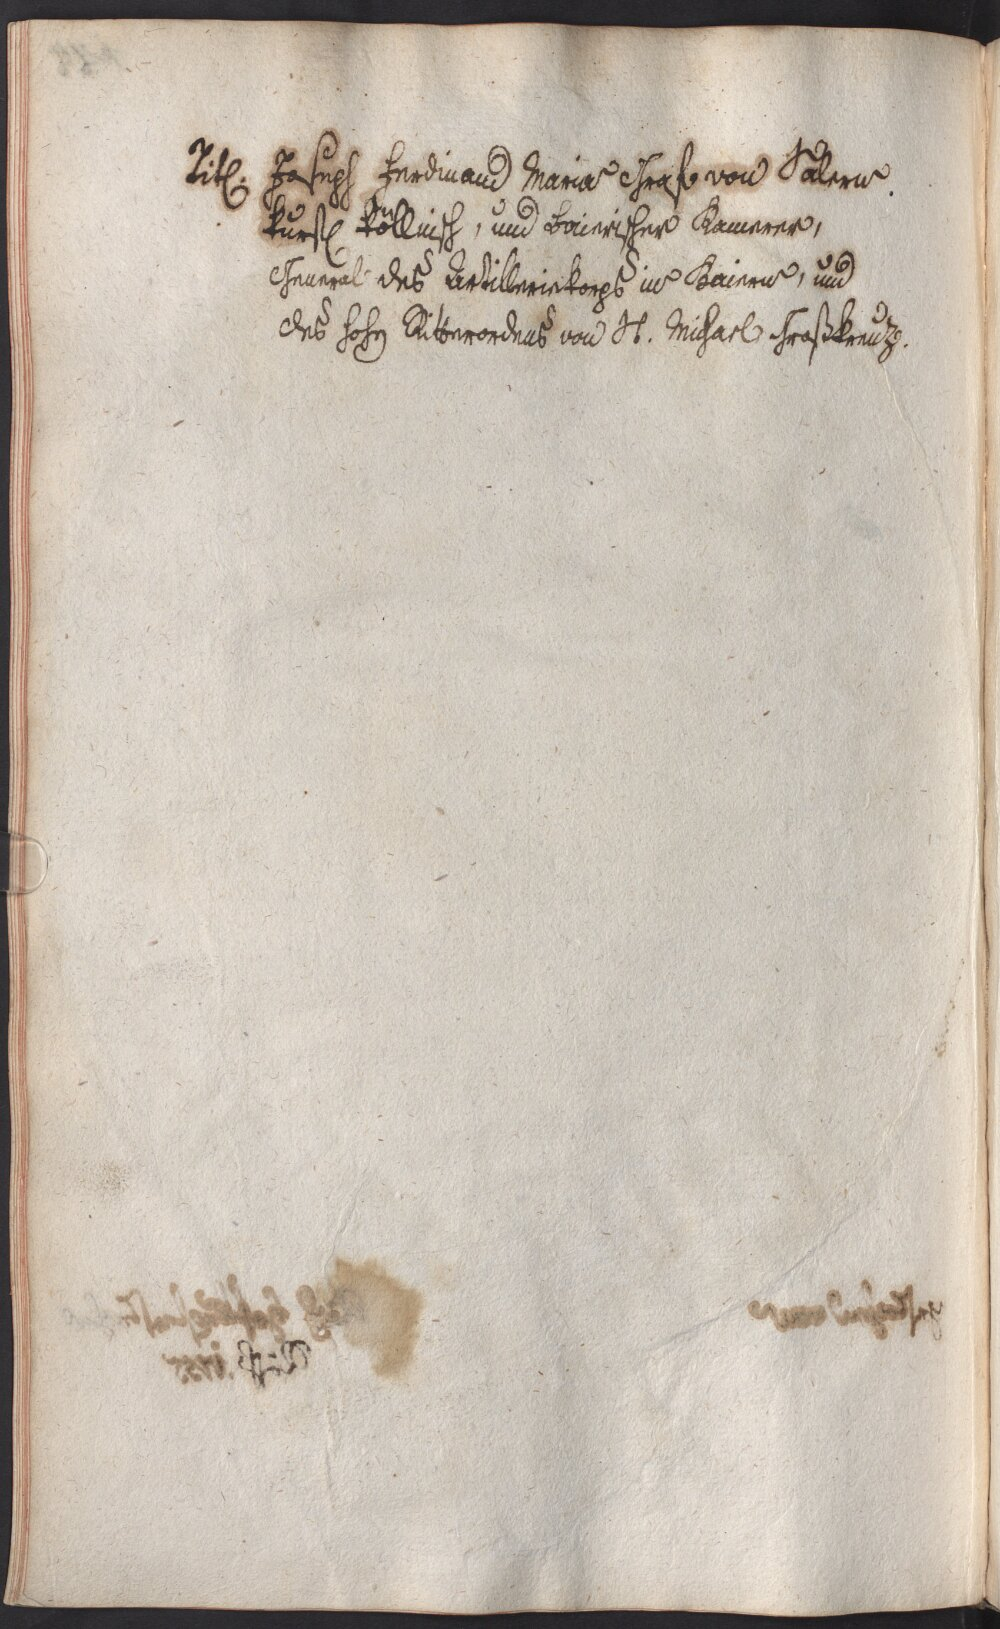 Titl. Joseph Ferdinand Maria Graf von Salern
kurfl. köllnisch, und baierischer Kamerer,
General des Artilleriekorps in Baiern, und
des hohen Ritterordens von St. Michael Großkreutz.